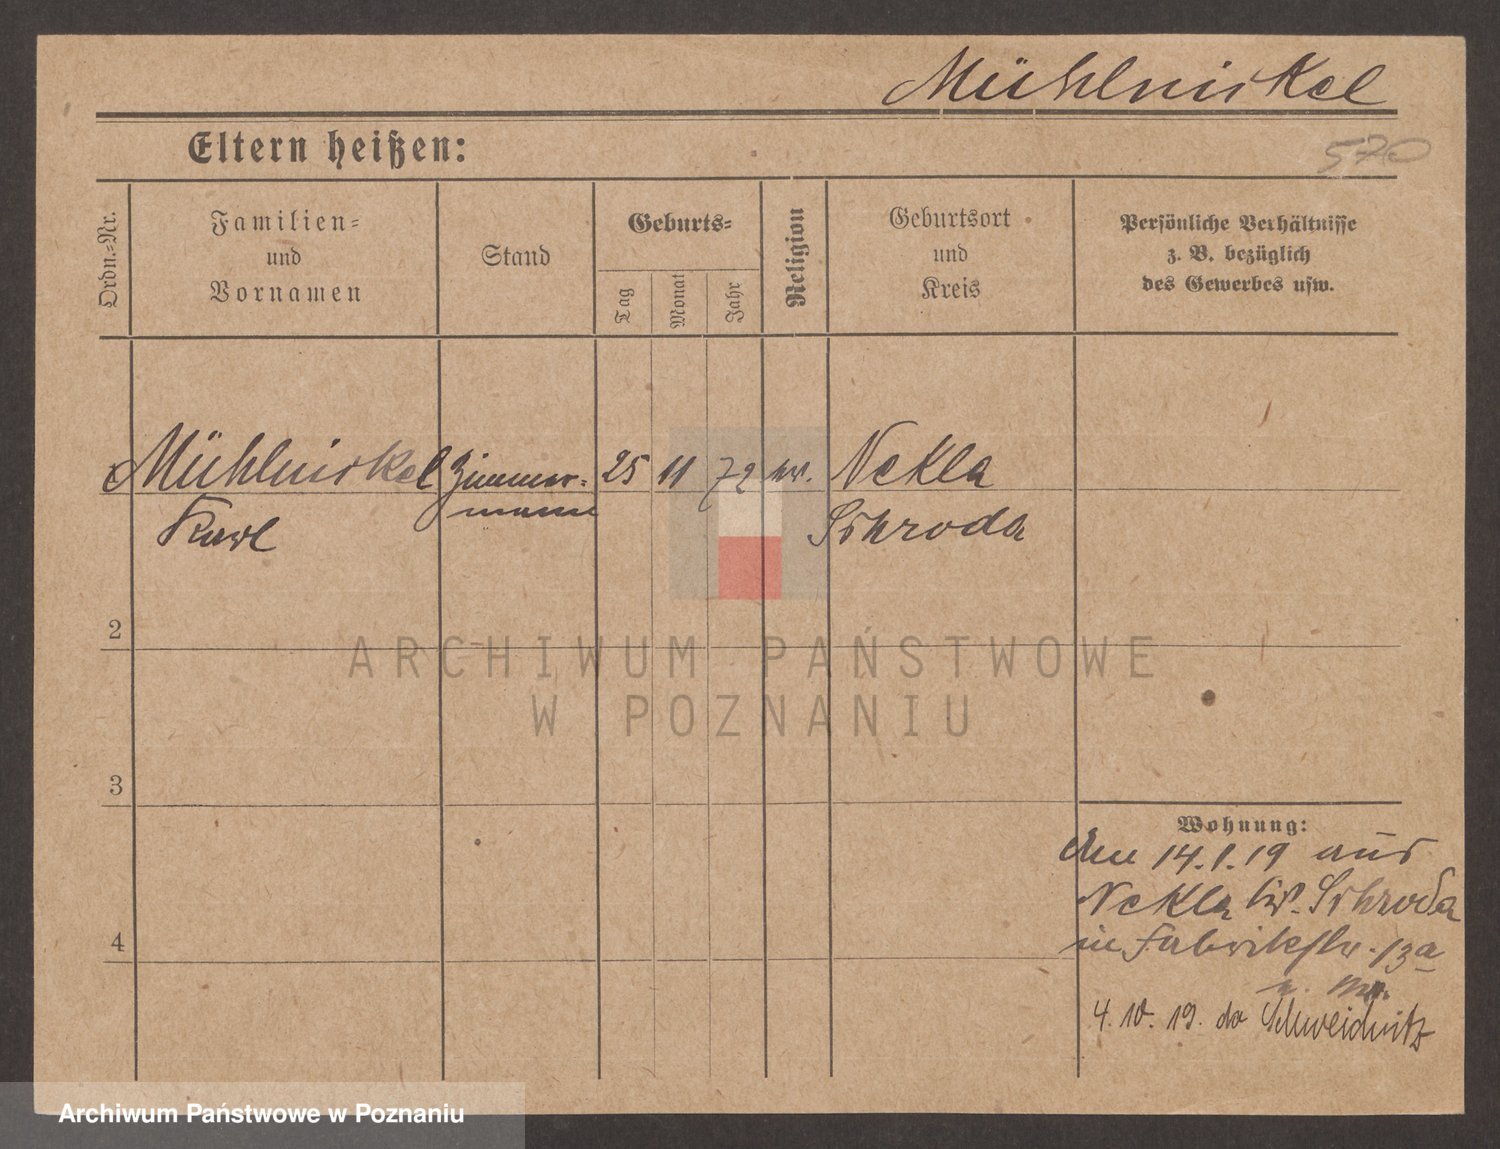 Mühlnickel
570
Eltern heißen:
Ordn.-Nr.
Familien-
und
Vornamen
Stand
Geburts-
Tag
Monat
Jahr
Religion
Geburtsort
und
Kreis
Persönliche Verhältnisse
z. B. bezüglich
des Gewerbes usw.
Mühlnickel Zimmer- 25 11 72 Nekla
Karl mann Schroda
2
3
4
Wohnung:
Am 14.1.19 aus
Nekla Krs. Schroda
in Fabrikstr. 13a
4. 10. 19. do Schweidnitz
ARCHIWUM PAŃSTWOWE
W POZNANIU
Archiwum Państwowe w Poznaniu